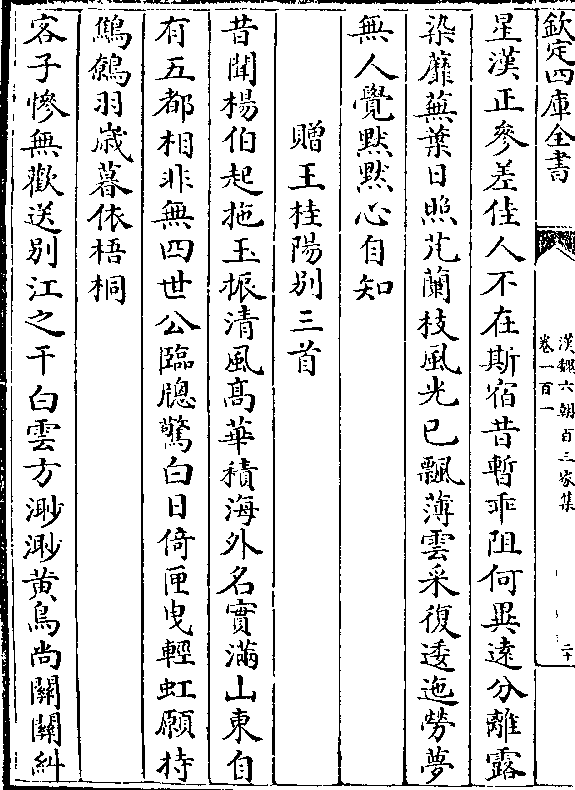 欽定四庫全書
漢魏六朝百三家集
卷一百一
二十
星漢正參差佳人不在斯宿昔暫乖阻何異遠分離露
染蘼蕪葉日照芄蘭枝風光已飄薄雲采復逶迤勞夢
無人覺黙黙心自知
贈王桂陽别三首
昔聞楊伯起拖玉振清風髙華積海外名實滿山東自
有五都相非無四世公臨牎驚白日倚匣曳輕虹願持
鷦鷯羽歲暮依梧桐
客子慘無歡送别江之干白雲方渺渺黄鳥尚關關糾